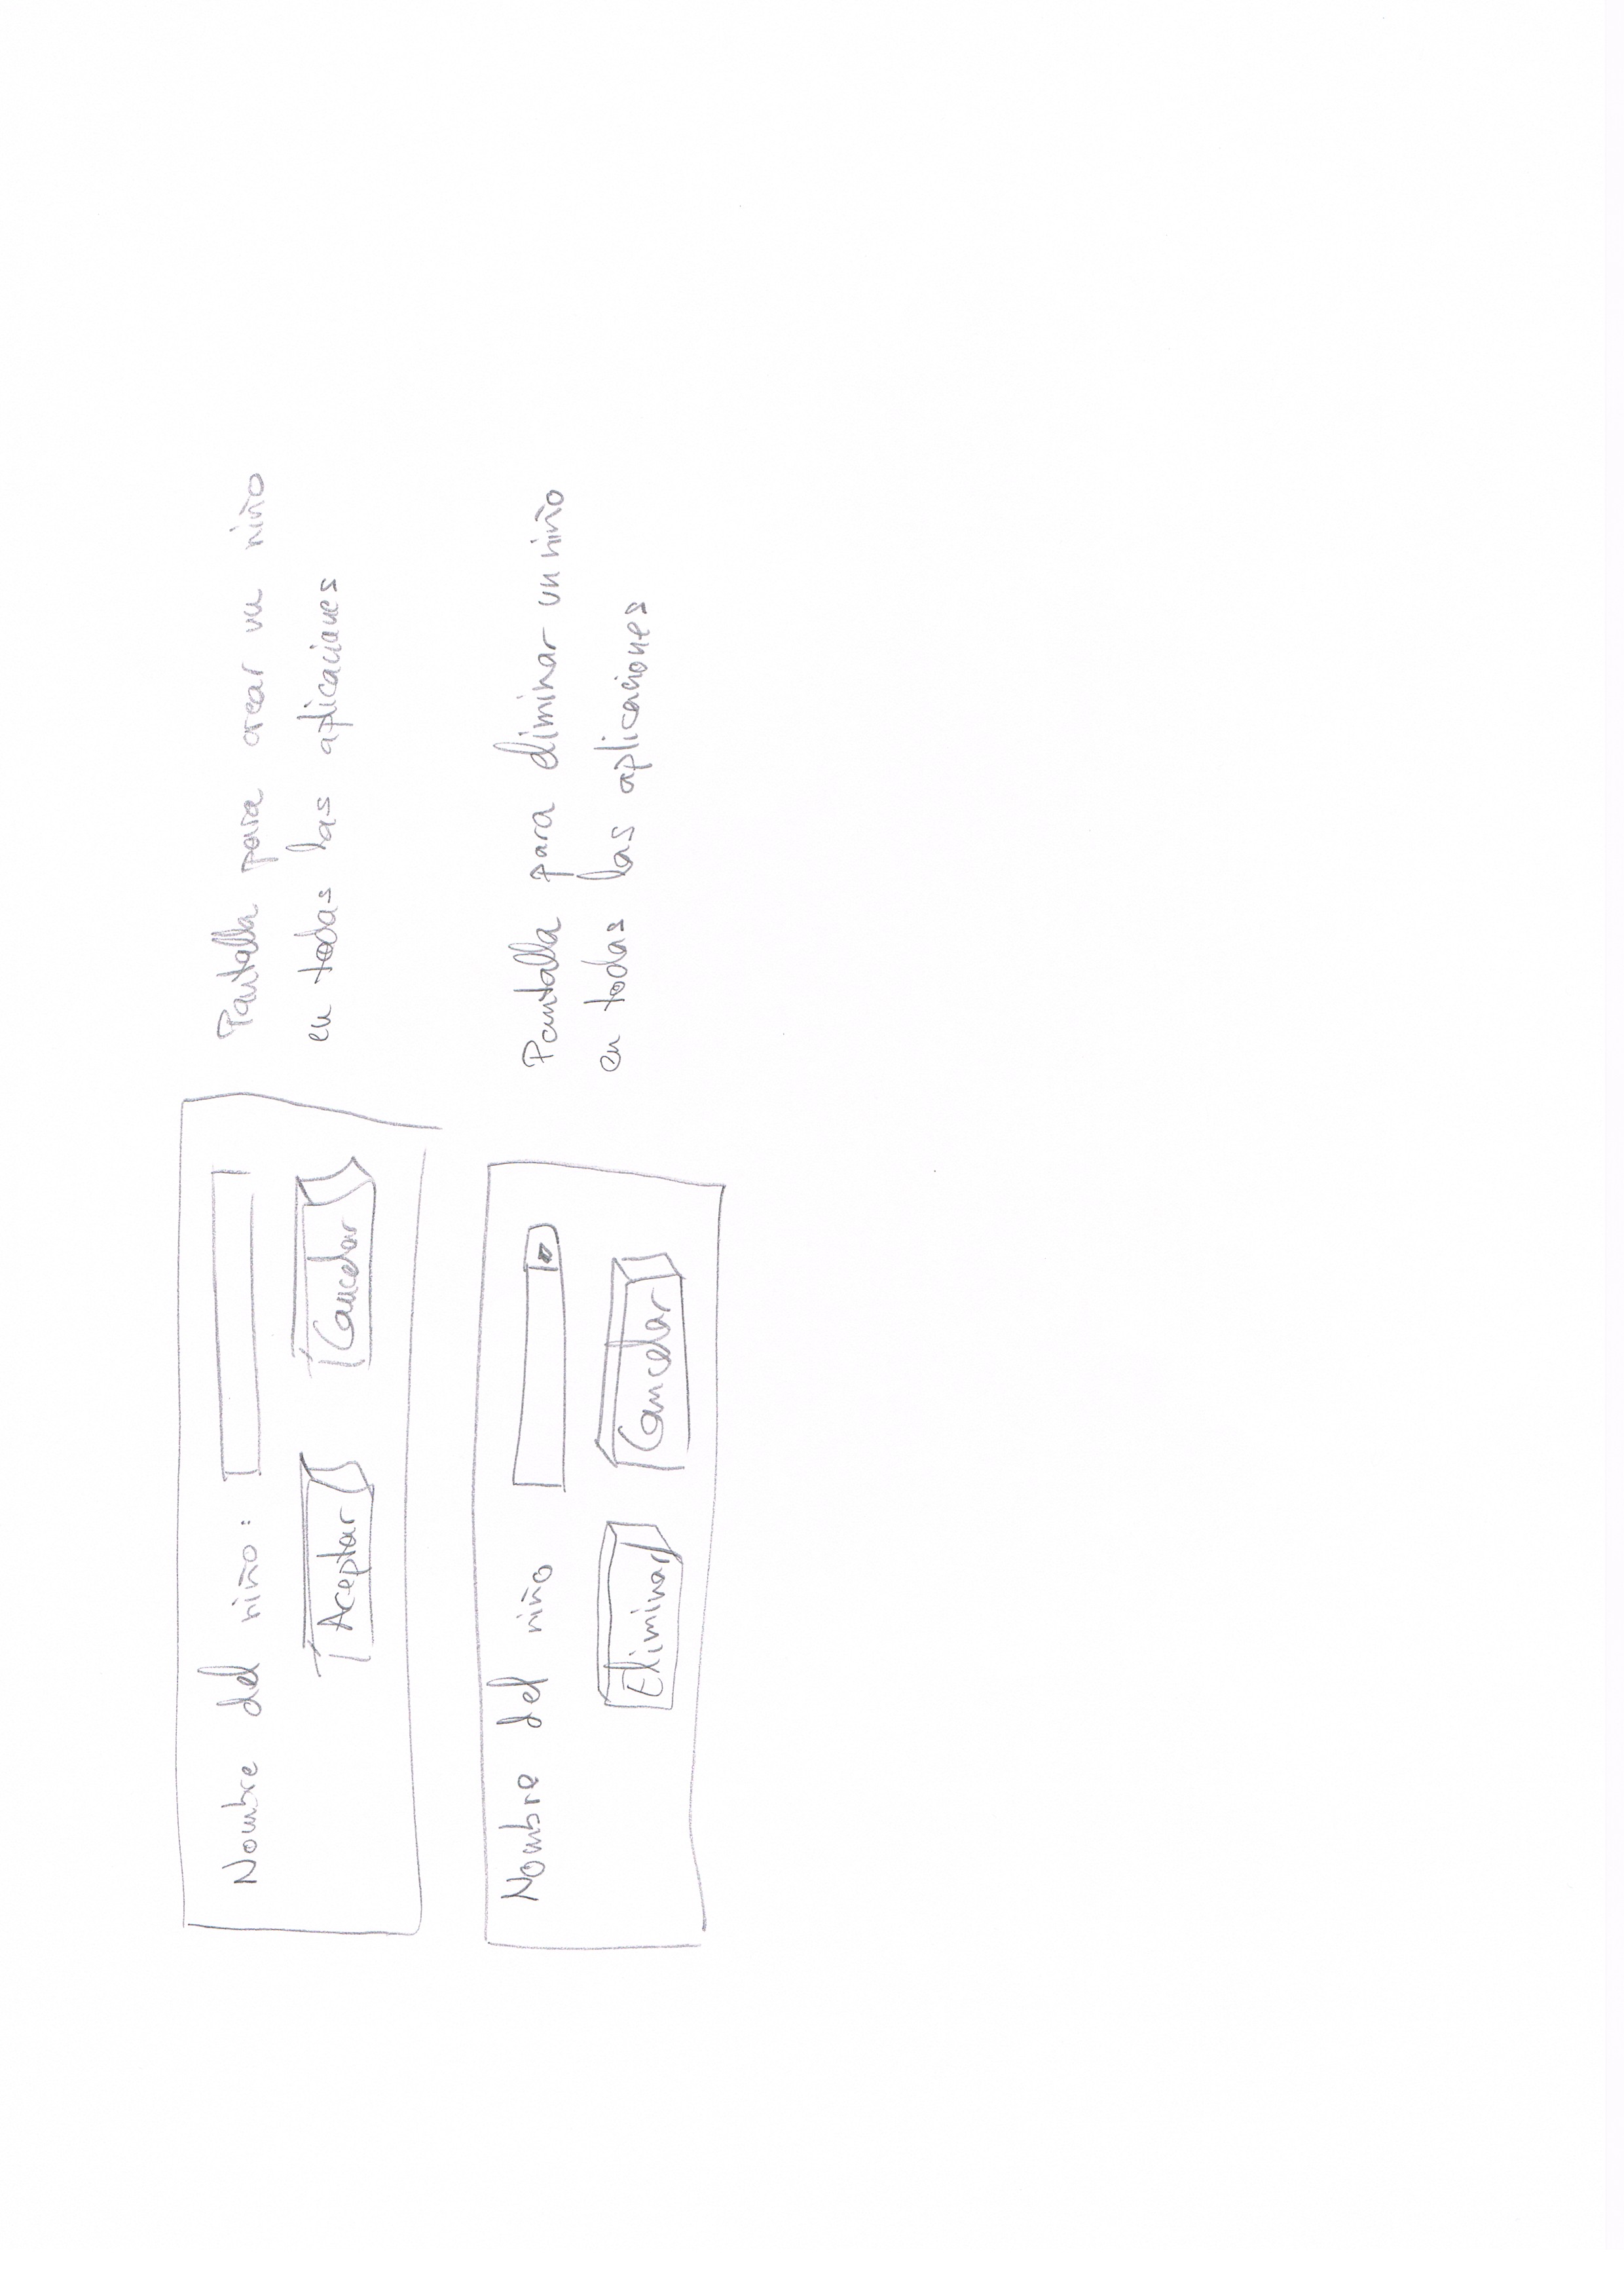 Nombre del niño:
Aceptar Cancelar
Pantalla para crear un niño
en todas las aplicaciones
Nombre del niño
Eliminar Cancelar
Pantalla para eliminar un niño
en todas las aplicaciones